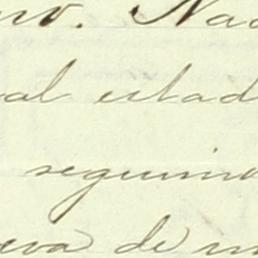 no. Na
al estad
seguim
eva de m